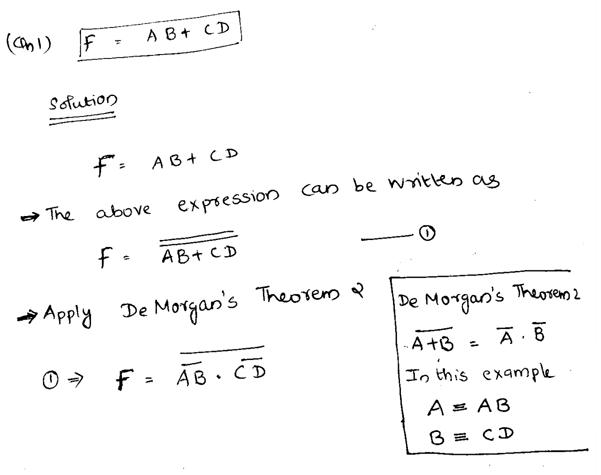 (Qn1) F = AB + CD
Solution
F = AB + CD
→ The above expression can be written as
F = \overline{\overline{AB + CD}} —— ①
→ Apply De Morgan's Theorem 2
① ⇒ F = \overline{\overline{AB} . \overline{CD}}
De Morgan's Theorem 2
\overline{A+B} = \overline{A} . \overline{B}
In this example
A ≡ AB
B ≡ CD